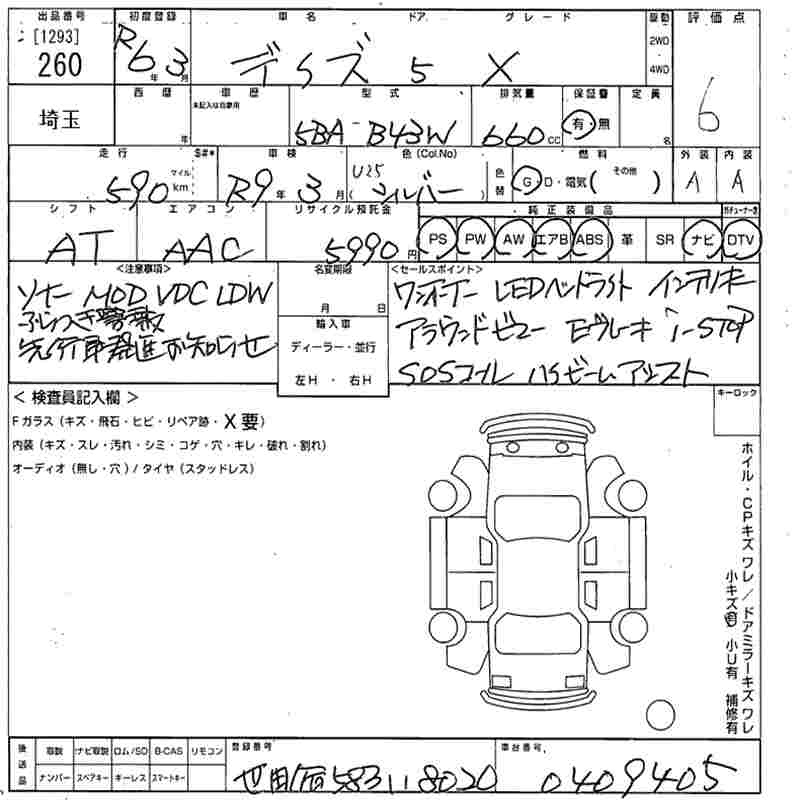 出品番号 初度登録 車名 ドア グレード 駆動 評価点
[1293] 260 R6年3月 デイズ 5 X 2WD 4WD 6
埼玉 西暦 年 車歴 未記入は自家用 型式 5BA-B43W 排気量 660cc 保証書 有・無 定員 名
走行 590 マイル km S#* 車検 R9年3月 色(Col.No) U25 (シルバー) 色替 燃料 G・D・電気(その他) 外装 A 内装 A
シフト AT エアコン AAC リサイクル預託金 5990円 純正装備品 PS PW AW エアB ABS 革 SR ナビ DTV
<注意事項>
ソナー MOD VDC LDW
ふらつき警報
先行車発進お知らせ
名変期限
月 日
輸入車
ディーラー・並行
左H・右H
<セールスポイント>
ワンオーナー LEDヘッドライト インテリキー
アラウンドビュー Eブレーキ i-STOP
SOSコール ハイビームアシスト
<検査員記入欄>
Fガラス(キズ・飛石・ヒビ・リペア跡・X要)
内装(キズ・スレ・汚れ・シミ・コゲ・穴・キレ・破れ・割れ)
オーディオ(無し・穴)/タイヤ(スタッドレス)
キーロック
ホイル・CPキズ ワレ/ドアミラーキズ ワレ
小キズ有 小U有 補修有
後送品 取説 ナビ取説 ロム/SD B-CAS リモコン
ナンバー スペアキー キーレス スマートキー
登録番号 583 118020
車台番号 0409405